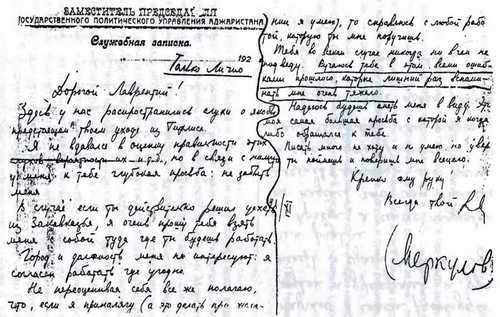 ЗАМЕСТИТЕЛЬ ПРЕДСЕДА ЛЯ
ГОСУДАРСТВЕННОГО ПОЛИТИЧЕСКОГО УПРАВЛЕНИЯ АДЖАРИСТАНА
Служебная записка.
192
Только Лично
Дорогой Лаврентий!
Здесь у нас распространились слухи о якобы
предстоящем твоем уходе из Тифлиса.
Я не вдаваясь в оценку правильности этих
слухов, вероятности их и т.д., но в связи с ними
у меня к тебе глубокая просьба: не забыть
меня
В случае если ты действительно решил уехать
из Закавказья, я очень прошу тебя взять
меня с собой туда где ты будешь работать.
Город и должность меня не интересуют: я
согласен работать где угодно.
Не переоценивая себя все же полагаю,
что, если я приналягу (а это делать при
нии я умею), то справлюсь с любой рабо
той, которую ты мне поручишь.
Тебя во всяком случае никогда ни в чем не
подведу. Ручаюсь тебе в этом всеми ошиб
ками прошлого, которые лишний раз
нать мне очень тяжело.
Надеюсь будешь иметь меня в виду. Это
моя самая большая просьба с которой я когда
либо обращался к тебе.
Писать много не хочу и не умею, но увер
ты поймешь и поверишь мне всецело.
Крепко жму руку!
Всегда твой
(Меркулов)